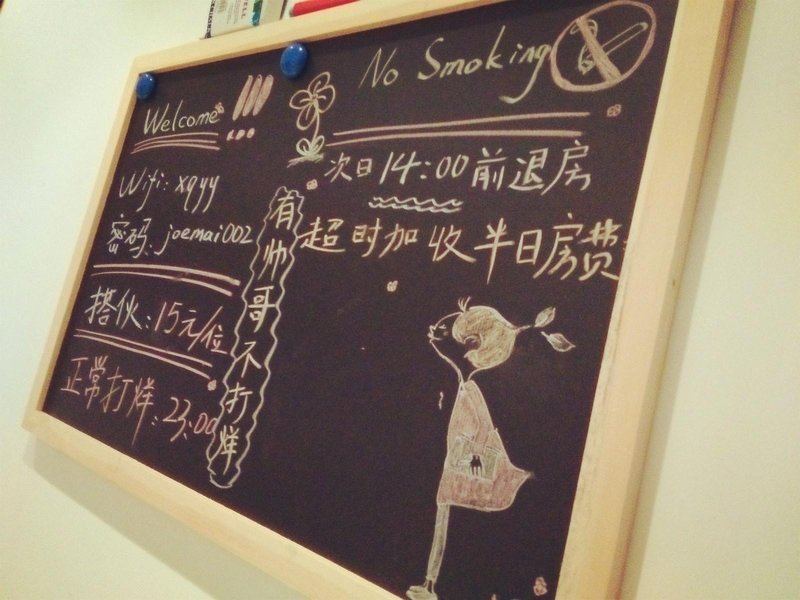 Welcome
Wifi: xqyy
密码: joemai002
搭伙: 15元/位
正常打烊: 23:00
有帅哥不打烊
No Smoking
次日14:00前退房
超时加收半日房费